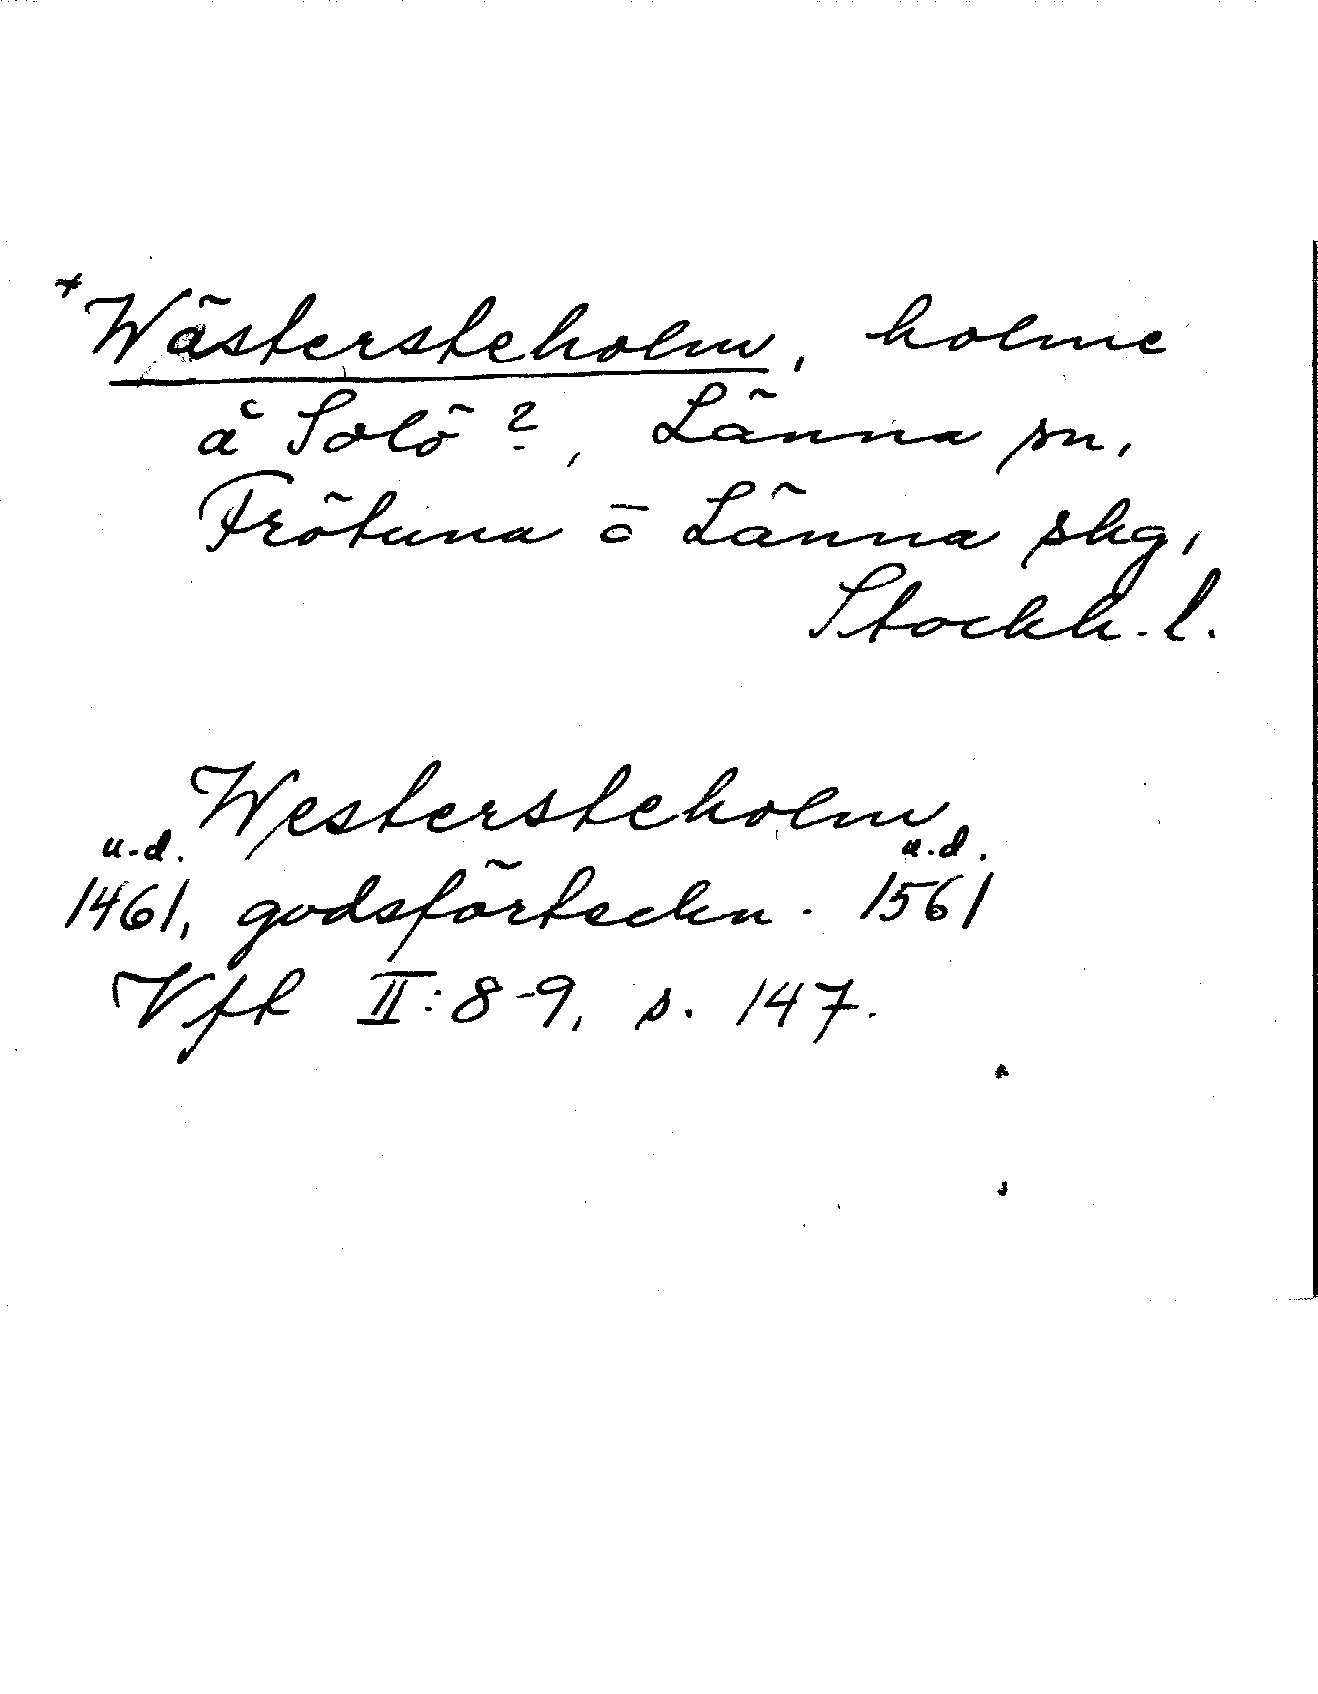 +Wästersteholm, holme
å Solö?, Länna sn,
Frötuna o Länna skg,
Stockh. l.
Westersteholm
u.d. u.d.
1461, godsförteckn. 1561
Vfk II:8-9, s. 147.